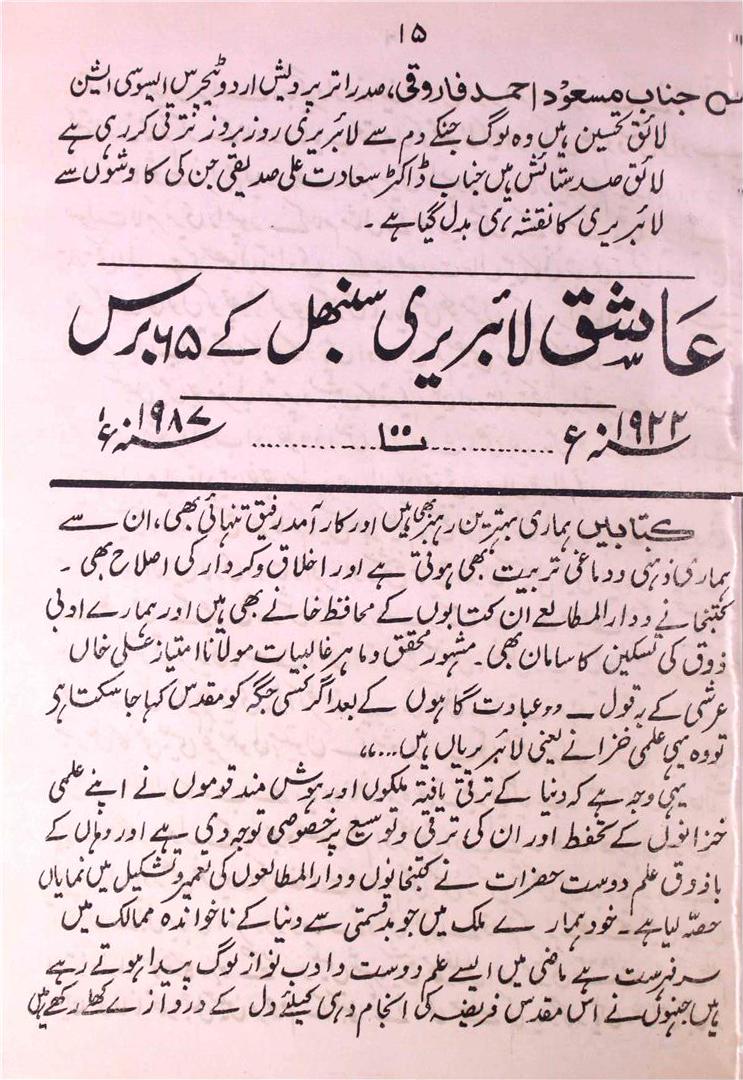 ۱۵
جناب مسعود احمد فاروقی، صدر اتر پردیش اردو ٹیچرس ایسوسی ایشن
لائق تحسین ہیں وہ لوگ جنکے دم سے لائبریری روز بروز ترقی کر رہی ہے
لائق صد ستائش ہیں جناب ڈاکٹر سعادت علی صدیقی جن کی کاوشوں سے
لائبریری کا نقشہ ہی بدل گیا ہے۔
عاشق لائبریری سنبھل کے ۶۵ برس
سنہ ۱۹۲۲ء ........ تا ........ سنہ ۱۹۸۷ء
کتابیں ہماری بہترین رہبر بھی ہیں اور کار آمد رفیق تنہائی بھی، ان سے
ہماری ذہنی و دماغی تربیت بھی ہوتی ہے اور اخلاق و کردار کی اصلاح بھی۔
کتبخانے و دارالمطالعے ان کتابوں کے محافظ خانے بھی ہیں اور ہمارے ادبی
ذوق کی تسکین کا سامان بھی۔ مشہور محقق و ماہر غالبیات مولانا امتیاز علی خاں
عرشی کے بقول ـ "عبادت گاہوں کے بعد اگر کسی جگہ کو مقدس کہا جا سکتا ہے
تو وہ یہی علمی خزانے یعنی لائبریریاں ہیں..."
یہی وجہ ہے کہ دنیا کے ترقی یافتہ ملکوں اور ہوش مند قوموں نے اپنے علمی
خزانوں کے تحفظ اور ان کی ترقی و توسیع پر خصوصی توجہ دی ہے اور وہاں کے
باذوق علم دوست حضرات نے کتبخانوں و دارالمطالعوں کی تعمیر و تشکیل میں نمایاں
حصہ لیا ہے۔ خود ہمارے ملک میں جو بدقسمتی سے دنیا کے ناخواندہ ممالک میں
سر فہرست ہے ماضی میں ایسے علم دوست و ادب نواز لوگ پیدا ہوتے رہے
ہیں جنہوں نے اس مقدس فریضہ کی انجام دہی کیلئے دل کے دروازے کھلے رکھے ہیں